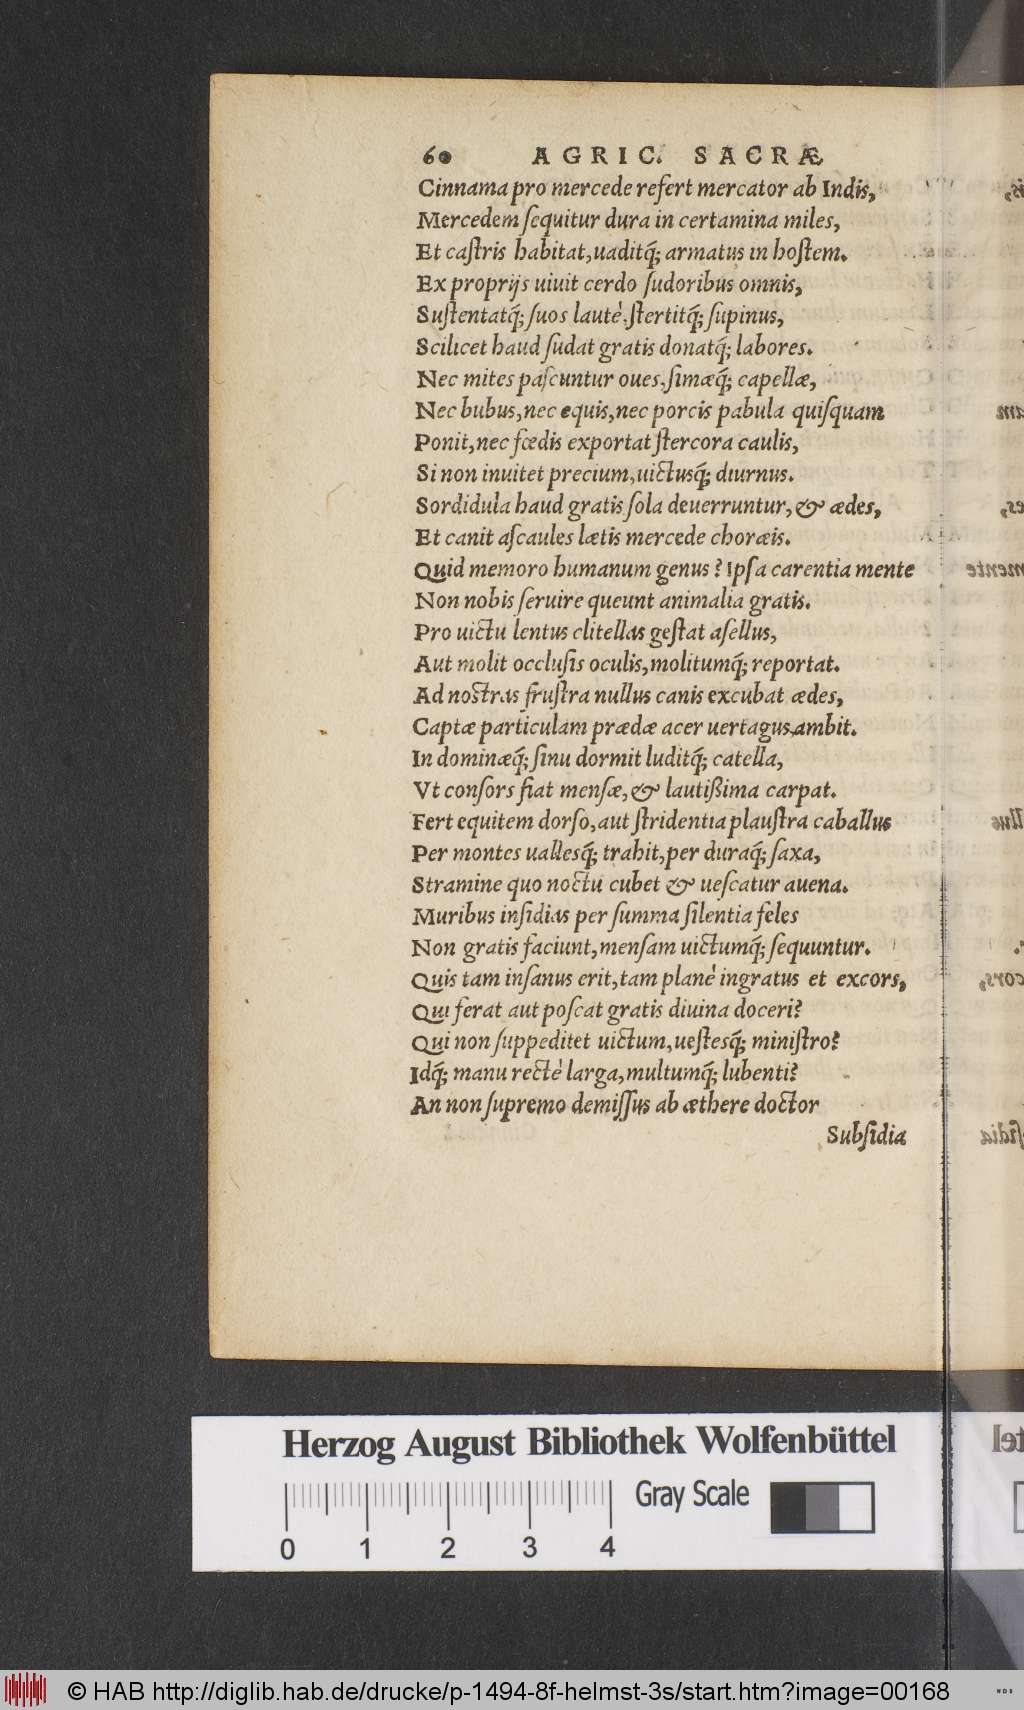 60 AGRIC. SACRÆ
Cinnama pro mercede refert mercator ab Indis,
Mercedem ſequitur dura in certamina miles,
Et caſtris habitat, uaditq́; armatus in hoſtem.
Ex proprijs uiuit cerdo ſudoribus omnis,
Suſtentatq́; ſuos lautè, ſtertitq́; ſupinus,
Scilicet haud ſudat gratis donatq́; labores.
Nec mites paſcuntur oues, ſimæq́; capellæ,
Nec bubus, nec equis, nec porcis pabula quiſquam
Ponit, nec fœdis exportat ſtercora caulis,
Si non inuitet precium, uictusq́; diurnus.
Sordidula haud gratis ſola deuerruntur, & ædes,
Et canit aſcaules lætis mercede choræis.
Quid memoro humanum genus? Ipſa carentia mente
Non nobis ſeruire queunt animalia gratis.
Pro uictu lentus clitellas geſtat aſellus,
Aut molit occluſis oculis, molitumq́; reportat.
Ad nostras fruſtra nullus canis excubat ædes,
Captæ particulam prædæ acer uertagus ambit.
In dominæq́; ſinu dormit luditq́; catella,
Vt conſors fiat menſæ, & lautißima carpat.
Fert equitem dorſo, aut ſtridentia plauſtra caballus
Per montes uallesq́; trahit, per duraq́; ſaxa,
Stramine quo noctu cubet & ueſcatur auena.
Muribus inſidias per ſumma ſilentia feles
Non gratis faciunt, menſam uictumq́; ſequuntur.
Quis tam inſanus erit, tam planè ingratus et excors,
Qui ferat aut poſcat gratis diuina doceri?
Qui non ſuppeditet uictum, ueſtesq́; miniſtro?
Idq́; manu rectè larga, multumq́; lubenti?
An non ſupremo demiſſus ab æthere doctor
Subſidia
Herzog August Bibliothek Wolfenbüttel
Gray Scale
0 1 2 3 4
© HAB http://diglib.hab.de/drucke/p-1494-8f-helmst-3s/start.htm?image=00168